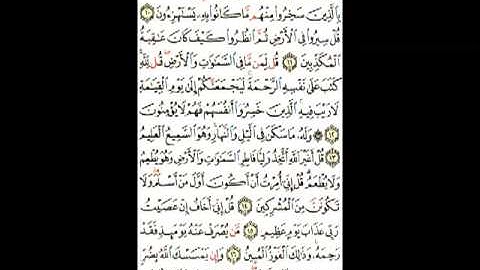 بِالَّذِينَ سَخِرُوا مِنْهُم مَّا كَانُوا بِهِ يَسْتَهْزِءُونَ ١٠
قُلْ سِيرُوا فِي الْأَرْضِ ثُمَّ انظُرُوا كَيْفَ كَانَ عَاقِبَةُ
الْمُكَذِّبِينَ ١١ قُل لِّمَن مَّا فِي السَّمَاوَاتِ وَالْأَرْضِ قُل لِّلَّهِ
كَتَبَ عَلَىٰ نَفْسِهِ الرَّحْمَةَ لَيَجْمَعَنَّكُمْ إِلَىٰ يَوْمِ الْقِيَامَةِ
لَا رَيْبَ فِيهِ الَّذِينَ خَسِرُوا أَنفُسَهُمْ فَهُمْ لَا يُؤْمِنُونَ
١٢ ۞ وَلَهُ مَا سَكَنَ فِي اللَّيْلِ وَالنَّهَارِ وَهُوَ السَّمِيعُ الْعَلِيمُ
١٣ قُلْ أَغَيْرَ اللَّهِ أَتَّخِذُ وَلِيًّا فَاطِرِ السَّمَاوَاتِ وَالْأَرْضِ وَهُوَ يُطْعِمُ
وَلَا يُطْعَمُ قُلْ إِنِّي أُمِرْتُ أَنْ أَكُونَ أَوَّلَ مَنْ أَسْلَمَ وَلَا
تَكُونَنَّ مِنَ الْمُشْرِكِينَ ١٤ قُلْ إِنِّي أَخَافُ إِنْ عَصَيْتُ
رَبِّي عَذَابَ يَوْمٍ عَظِيمٍ ١٥ مَّن يُصْرَفْ عَنْهُ يَوْمَئِذٍ فَقَدْ
رَحِمَهُ وَذَٰلِكَ الْفَوْزُ الْمُبِينُ ١٦ وَإِن يَمْسَسْكَ اللَّهُ بِضُرٍّ